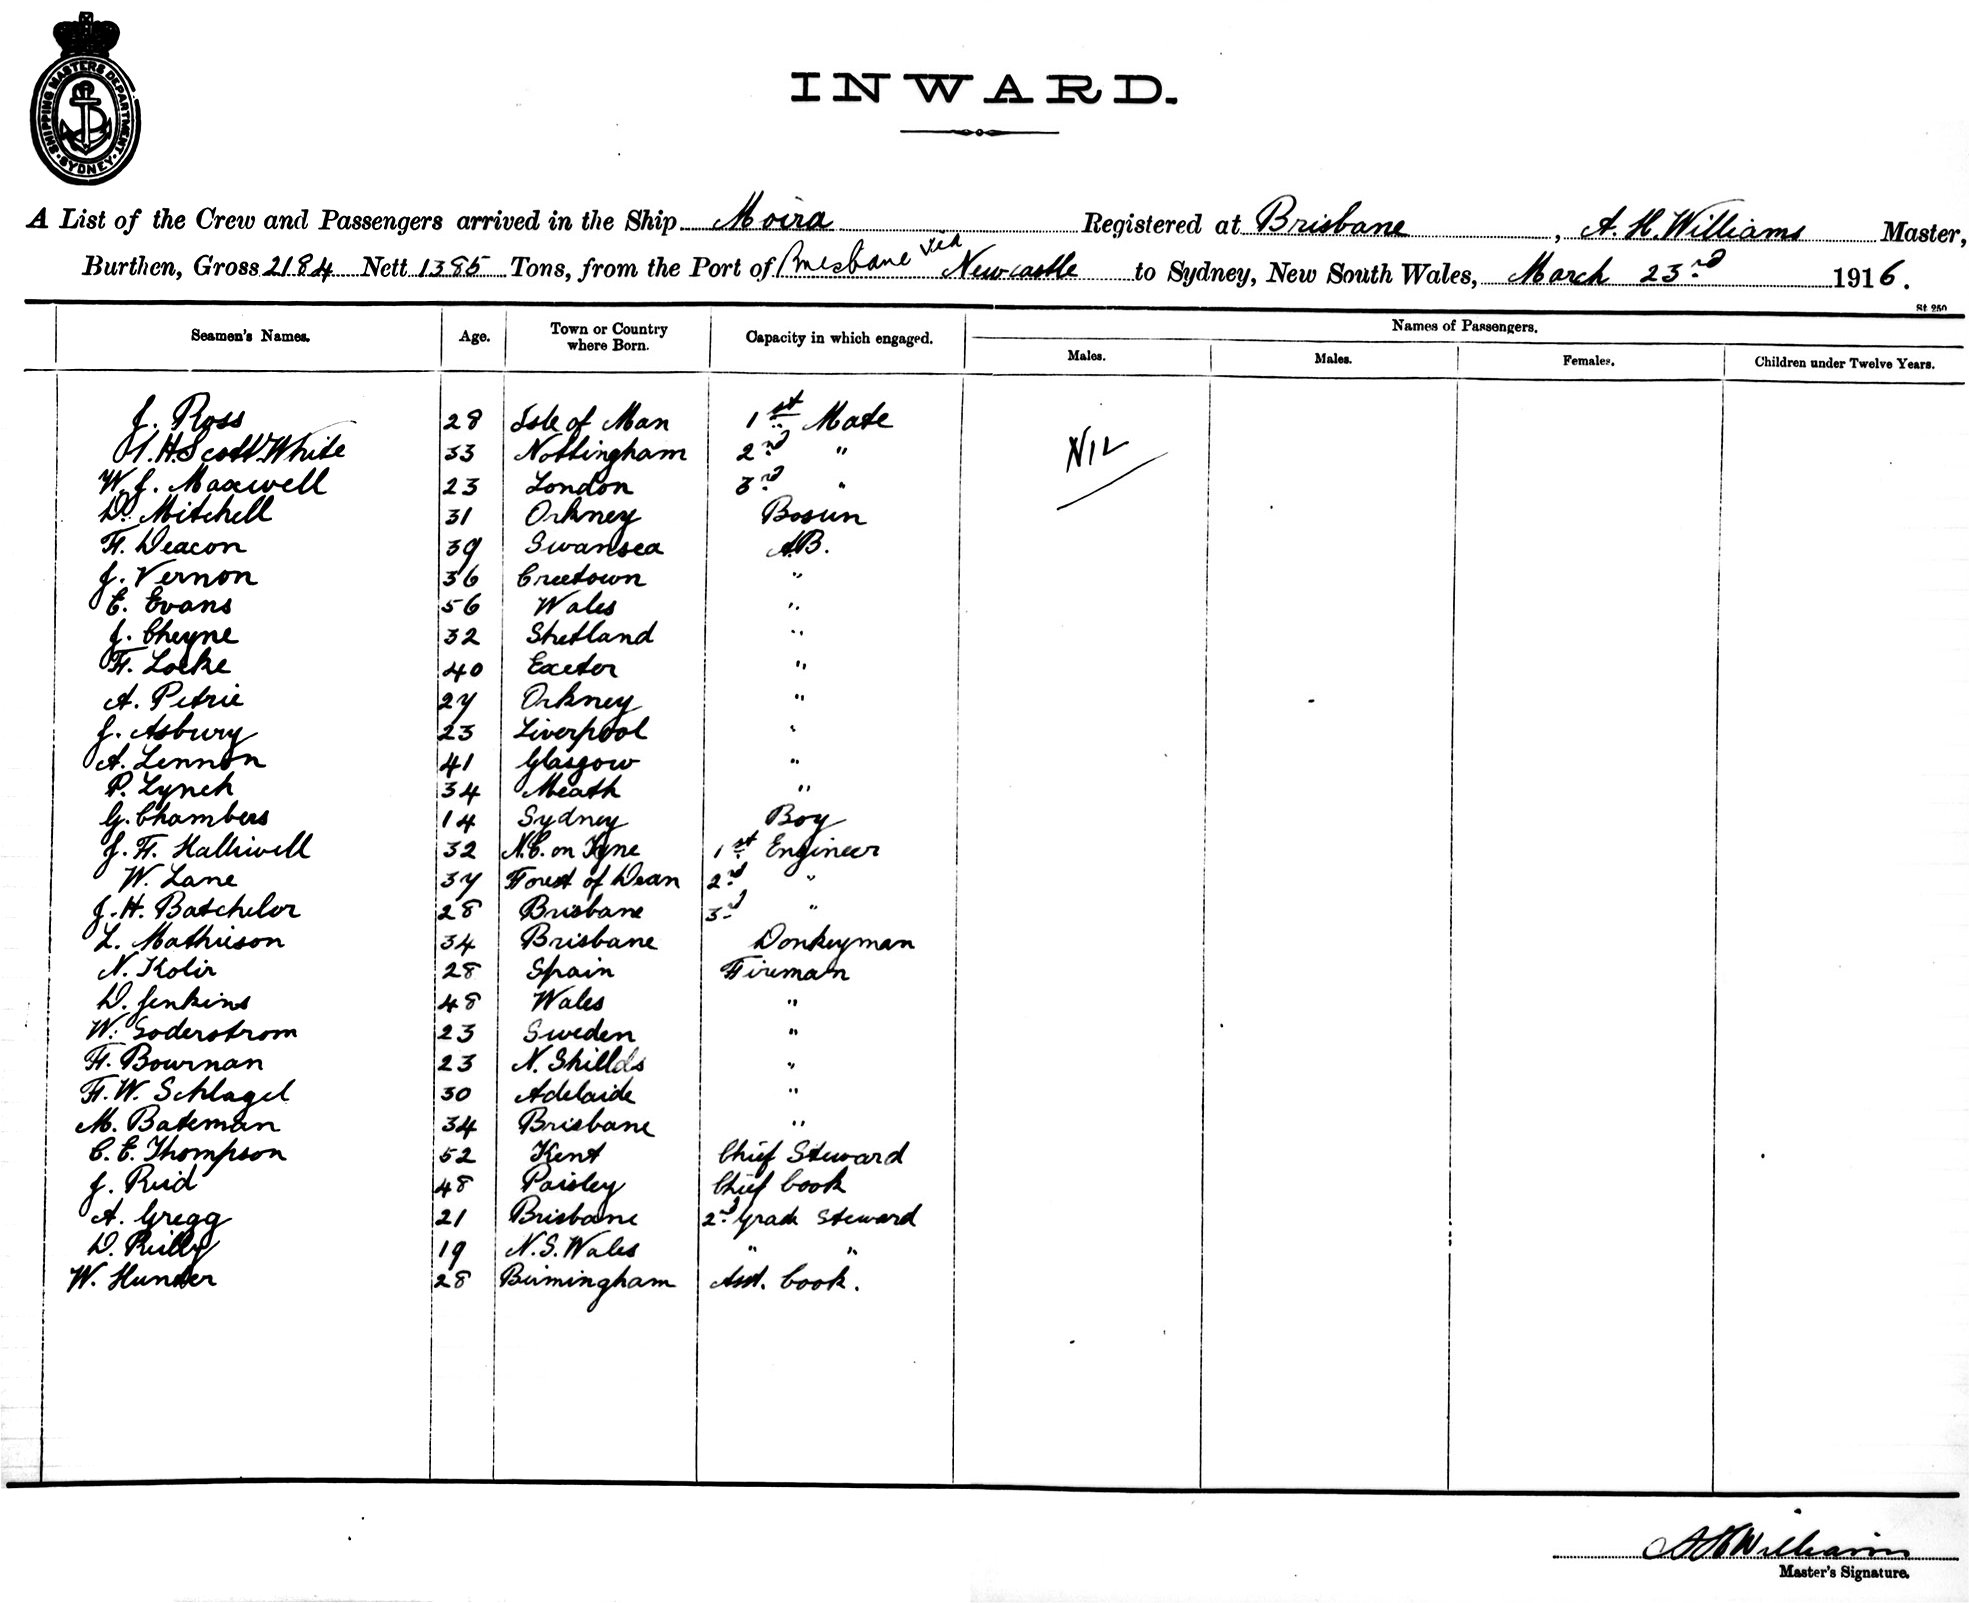 SHIPPING MASTERS DEPARTMENT. SYDNEY.
INWARD.
A List of the Crew and Passengers arrived in the Ship Moira Registered at Brisbane, A. H. Williams Master,
Burthen, Gross 2184 Nett 1385 Tons, from the Port of Brisbane via Newcastle to Sydney, New South Wales, March 23rd 1916.
St 250
Seamen's Names. Age. Town or Country where Born. Capacity in which engaged. Names of Passengers.
Males. Males. Females. Children under Twelve Years.
J. Ross 28 Isle of Man 1st Mate
H. Scott White 33 Nottingham 2nd "
NIL
W. J. Maxwell 23 London 3rd "
D. Mitchell 31 Orkney Bosun
F. Deacon 39 Swansea A.B.
J. Vernon 36 Creetown "
E. Evans 56 Wales "
J. Cheyne 32 Shetland "
F. Locke 40 Exeter "
A. Petrie 27 Orkney "
J. Asbury 23 Liverpool "
A. Lennon 41 Glasgow "
P. Lynch 34 Meath "
G. Chambers 14 Sydney Boy
J. F. Halliwell 32 N.C. on Tyne 1st Engineer
W. Lane 37 Forest of Dean 2nd "
J. H. Batchelor 28 Brisbane 3rd "
L. Mathieson 34 Brisbane Donkeyman
N. Kolir 28 Spain Fireman
D. Jenkins 48 Wales "
W. Soderstrom 23 Sweden "
F. Bowman 23 N. Shillds "
F. W. Schlagel 30 Adelaide "
M. Bateman 34 Brisbane "
C. E. Thompson 52 Kent Chief Steward
J. Reid 48 Paisley Chief Cook
A. Gregg 21 Brisbane 2nd Grade Steward
D. Reilly 19 N.S. Wales " "
W. Hunter 28 Birmingham Asst. Cook.
A H Williams
Master's Signature.